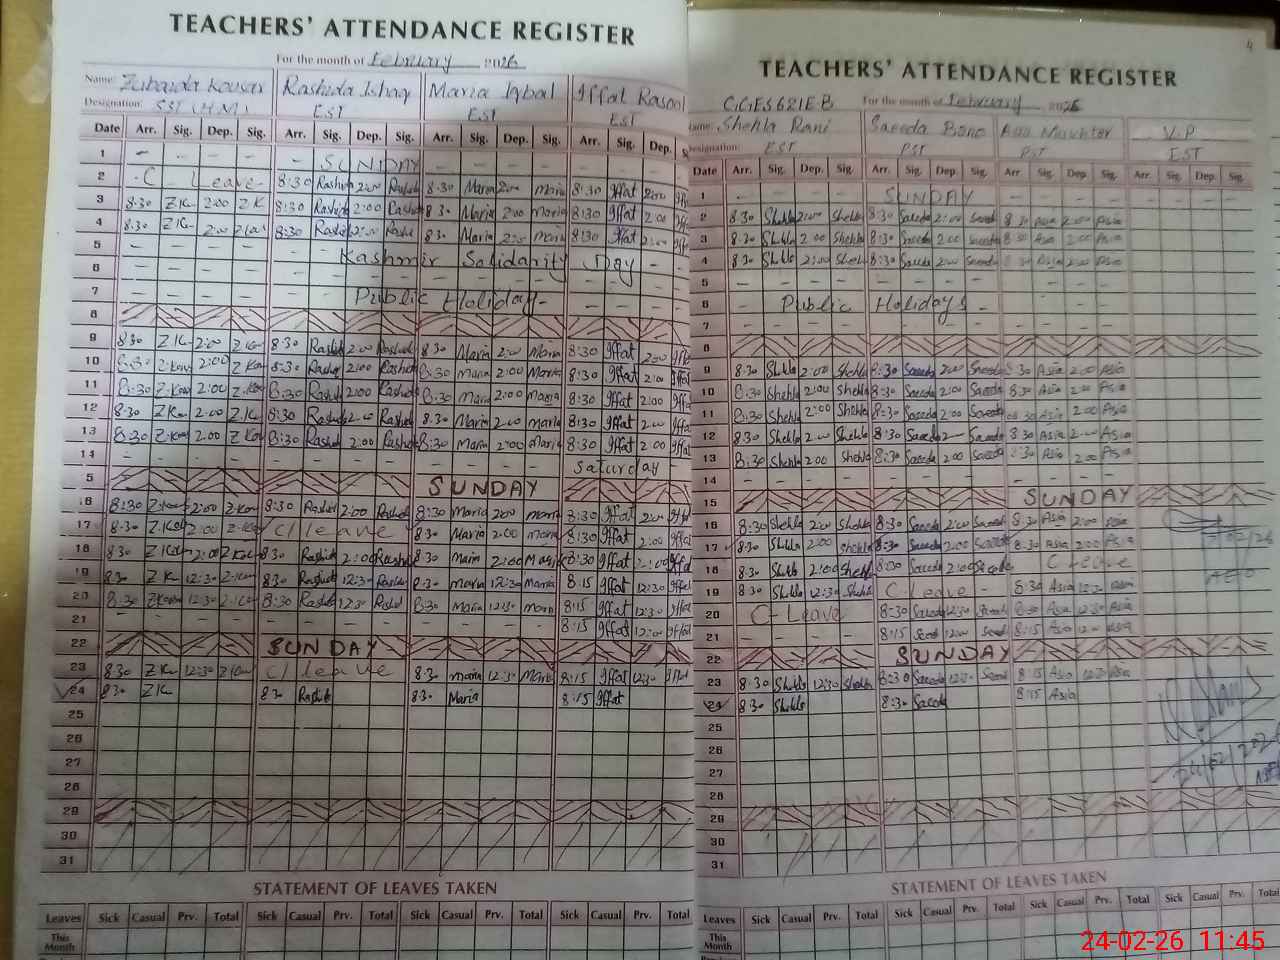 TEACHERS' ATTENDANCE REGISTER
For the month of February 2026
Name: Zubaida Kousar Rashida Ishaq Maria Iqbal Iffat Rasool
Designation: SST (H.M) EST EST EST
Date Arr. Sig. Dep. Sig. Arr. Sig. Dep. Sig. Arr. Sig. Dep. Sig. Arr. Sig. Dep.
1 - - - - SUNDAY - - - - - -
2 C Leave 8:30 Rashid 2:00 Rashid 8:30 Maria 2:00 Maria 8:30 Iffat 2:00
3 8:30 ZK 2:00 ZK 8:30 Rashid 2:00 Rashid 8:30 Maria 2:00 Maria 8:30 Iffat 2:00
4 8:30 ZK 2:00 8:30 Rashid 2:00 Rashid 8:30 Maria 2:00 Maria 8:30 Iffat 2:00
5 - - - - Kashmir Solidarity Day - -
6 - - - -
7 - - - - Public Holiday - - - -
8
9 8:30 ZK 2:00 ZK 8:30 Rashid 2:00 Rashid 8:30 Maria 2:00 Maria 8:30 Iffat 2:00 Iffat
10 8:30 Z.Kou 2:00 Z Kou 8:30 Rashid 2:00 Rashid 8:30 Maria 2:00 Maria 8:30 Iffat 2:00 Iffat
11 8:30 Z.Kou 2:00 Z.Kou 8:30 Rashid 2:00 Rashid 8:30 Maria 2:00 Maria 8:30 Iffat 2:00
12 8:30 Z Kou 2:00 Z.K 8:30 Rashid 2:00 Rashid 8:30 Maria 2:00 Maria 8:30 Iffat 2:00
13 8:30 Z.Kou 2:00 Z Kou 8:30 Rashid 2:00 Rashid 8:30 Maria 2:00 Maria 8:30 Iffat 2:00
14 - - - - - - - - - - Saturday -
5 SUNDAY
16 8:30 Z.Kou 2:00 Z.Kou 8:30 Rashid 2:00 Rashid 8:30 Maria 2:00 Maria 8:30 Iffat 2:00 Iffat
17 8:30 Z.Kou 2:00 Z.Kou C/ leave 8:30 Maria 2:00 Maria 8:30 Iffat 2:00 Iffat
18 8:30 Z Kou 2:00 Z Kou 8:30 Rashid 2:00 Rashid 8:30 Maria 2:00 Maria 8:30 Iffat 2:00 Iffat
19 8:30 Z K 12:30 8:30 Rashid 12:30 Rashid 8:30 Maria 12:30 Maria 8:15 Iffat 12:30 Iffat
20 8:30 Z Kou 12:30 8:30 Rashid 12:30 Rashid 8:30 Maria 12:30 Maria 8:15 Iffat 12:30 Iffat
21 - - - - - - - - 8:15 Iffat 12:00 Iffat
22 SUNDAY
23 8:30 Z K 12:30 Z Kou C/ leave 8:30 Maria 12:30 Maria 8:15 Iffat 12:30 Iffat
24 8:30 ZK 8:30 Rashid 8:30 Maria 8:15 Iffat
25
26
27
28
29
30
31
STATEMENT OF LEAVES TAKEN
Leaves Sick Casual Prv. Total Sick Casual Prv. Total Sick Casual Prv. Total Sick Casual Prv. Total
This Month
4
TEACHERS' ATTENDANCE REGISTER
GGES 621 EB For the month of February 2026
Name: Shehla Rani Saeeda Bano V.P
Designation: EST PST PST EST
Date Arr. Sig. Dep. Sig. Arr. Sig. Dep. Sig. Arr. Sig. Dep. Sig. Arr. Sig. Dep. Sig.
1 - - - - SUNDAY - - - -
2 8:30 Shehla 2:00 Shehla 8:30 Saeeda 2:00 Saeeda 8:30 Asia 2:00 Asia
3 8:30 Shehla 2:00 Shehla 8:30 Saeeda 2:00 Saeeda 8:30 Asia 2:00 Asia
4 8:30 Shehla 2:00 Shehla 8:30 Saeeda 2:00 Saeeda 8:30 Asia 2:00 Asia
5 - - - - - - - - - - - -
6 - Public Holidays - - - -
7 - - - - - - - - - - - -
8
9 8:30 Shehla 2:00 Shehla 8:30 Saeeda 2:00 Saeeda 8:30 Asia 2:00 Asia
10 8:30 Shehla 2:00 Shehla 8:30 Saeeda 2:00 Saeeda 8:30 Asia 2:00 Asia
11 8:30 Shehla 2:00 Shehla 8:30 Saeeda 2:00 Saeeda 8:30 Asia 2:00 Asia
12 8:30 Shehla 2:00 Shehla 8:30 Saeeda 2 Saeeda 8:30 Asia 2:00 Asia
13 8:30 Shehla 2:00 Shehla 8:30 Saeeda 2:00 Saeeda 8:30 Asia 2:00 Asia
14 - - - - - - - - - -
15 SUNDAY
16 8:30 Shehla 2:00 Shehla 8:30 Saeeda 2:00 Saeeda 8:30 Asia 2:00 Asia
17 8:30 Shehla 2:00 Shehla 8:30 Saeeda 2:00 Saeeda 8:30 Asia 2:00 Asia
18 8:30 Shehla 2:00 Shehla 8:30 Saeeda 2:00 Saeeda C leave
19 8:30 Shehla 12:30 Shehla C Leave - 8:30 Asia 12:30 Asia
AEO
20 C-Leave 8:30 Saeeda 12:30 Saeeda 8:30 Asia 12:30 Asia
21 - - - - 8:15 Saeed 12:00 Saeed 8:15 Asia 12:00 Asia
22 SUNDAY
23 8:30 Shehla 12:30 Shehla 8:30 Saeeda 12:30 Saeed 8:15 Asia 12:30 Asia
24 8:30 Shehla 8:30 Saeeda 8:15 Asia
25
26
27
28
29
30
31
24/02/202
STATEMENT OF LEAVES TAKEN
Leaves Sick Casual Prv. Total Sick Casual Prv. Total Sick Casual Prv. Total Sick Casual Prv. Total
This Month
24-02-26 11:45